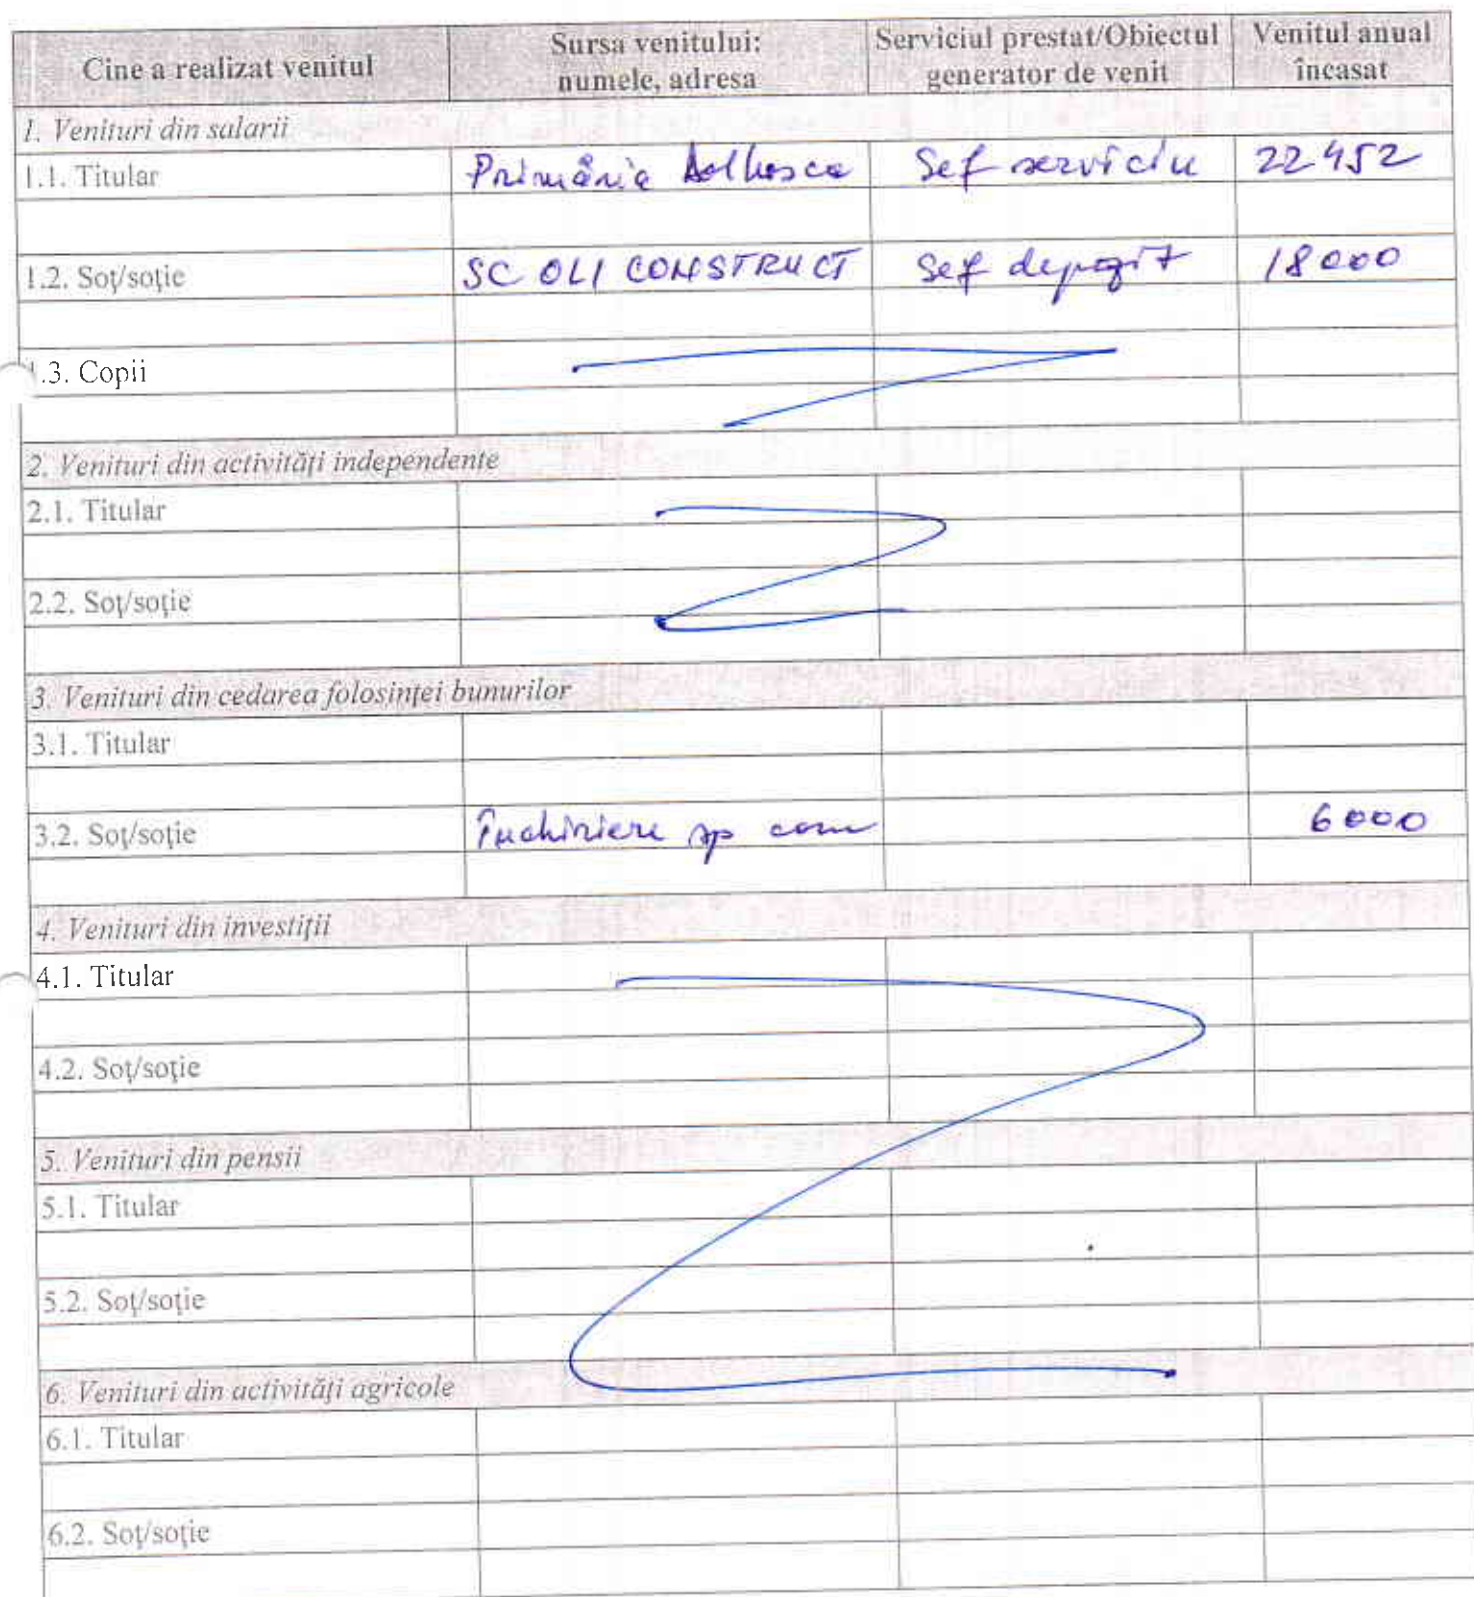 Cine a realizat venitul
Sursa venitului:
numele, adresa
Serviciul prestat/Obiectul
generator de venit
Venitul anual
încasat
1. Venituri din salarii
1.1. Titular Primăria Dolhasca Sef serviciu 22452
1.2. Soţ/soţie SC OLI CONSTRUCT Sef depozit 18000
1.3. Copii
2. Venituri din activităţi independente
2.1. Titular
2.2. Soţ/soţie
3. Venituri din cedarea folosinţei bunurilor
3.1. Titular
3.2. Soţ/soţie Închiriere sp com 6000
4. Venituri din investiţii
4.1. Titular
4.2. Soţ/soţie
5. Venituri din pensii
5.1. Titular
5.2. Soţ/soţie
6. Venituri din activităţi agricole
6.1. Titular
6.2. Soţ/soţie